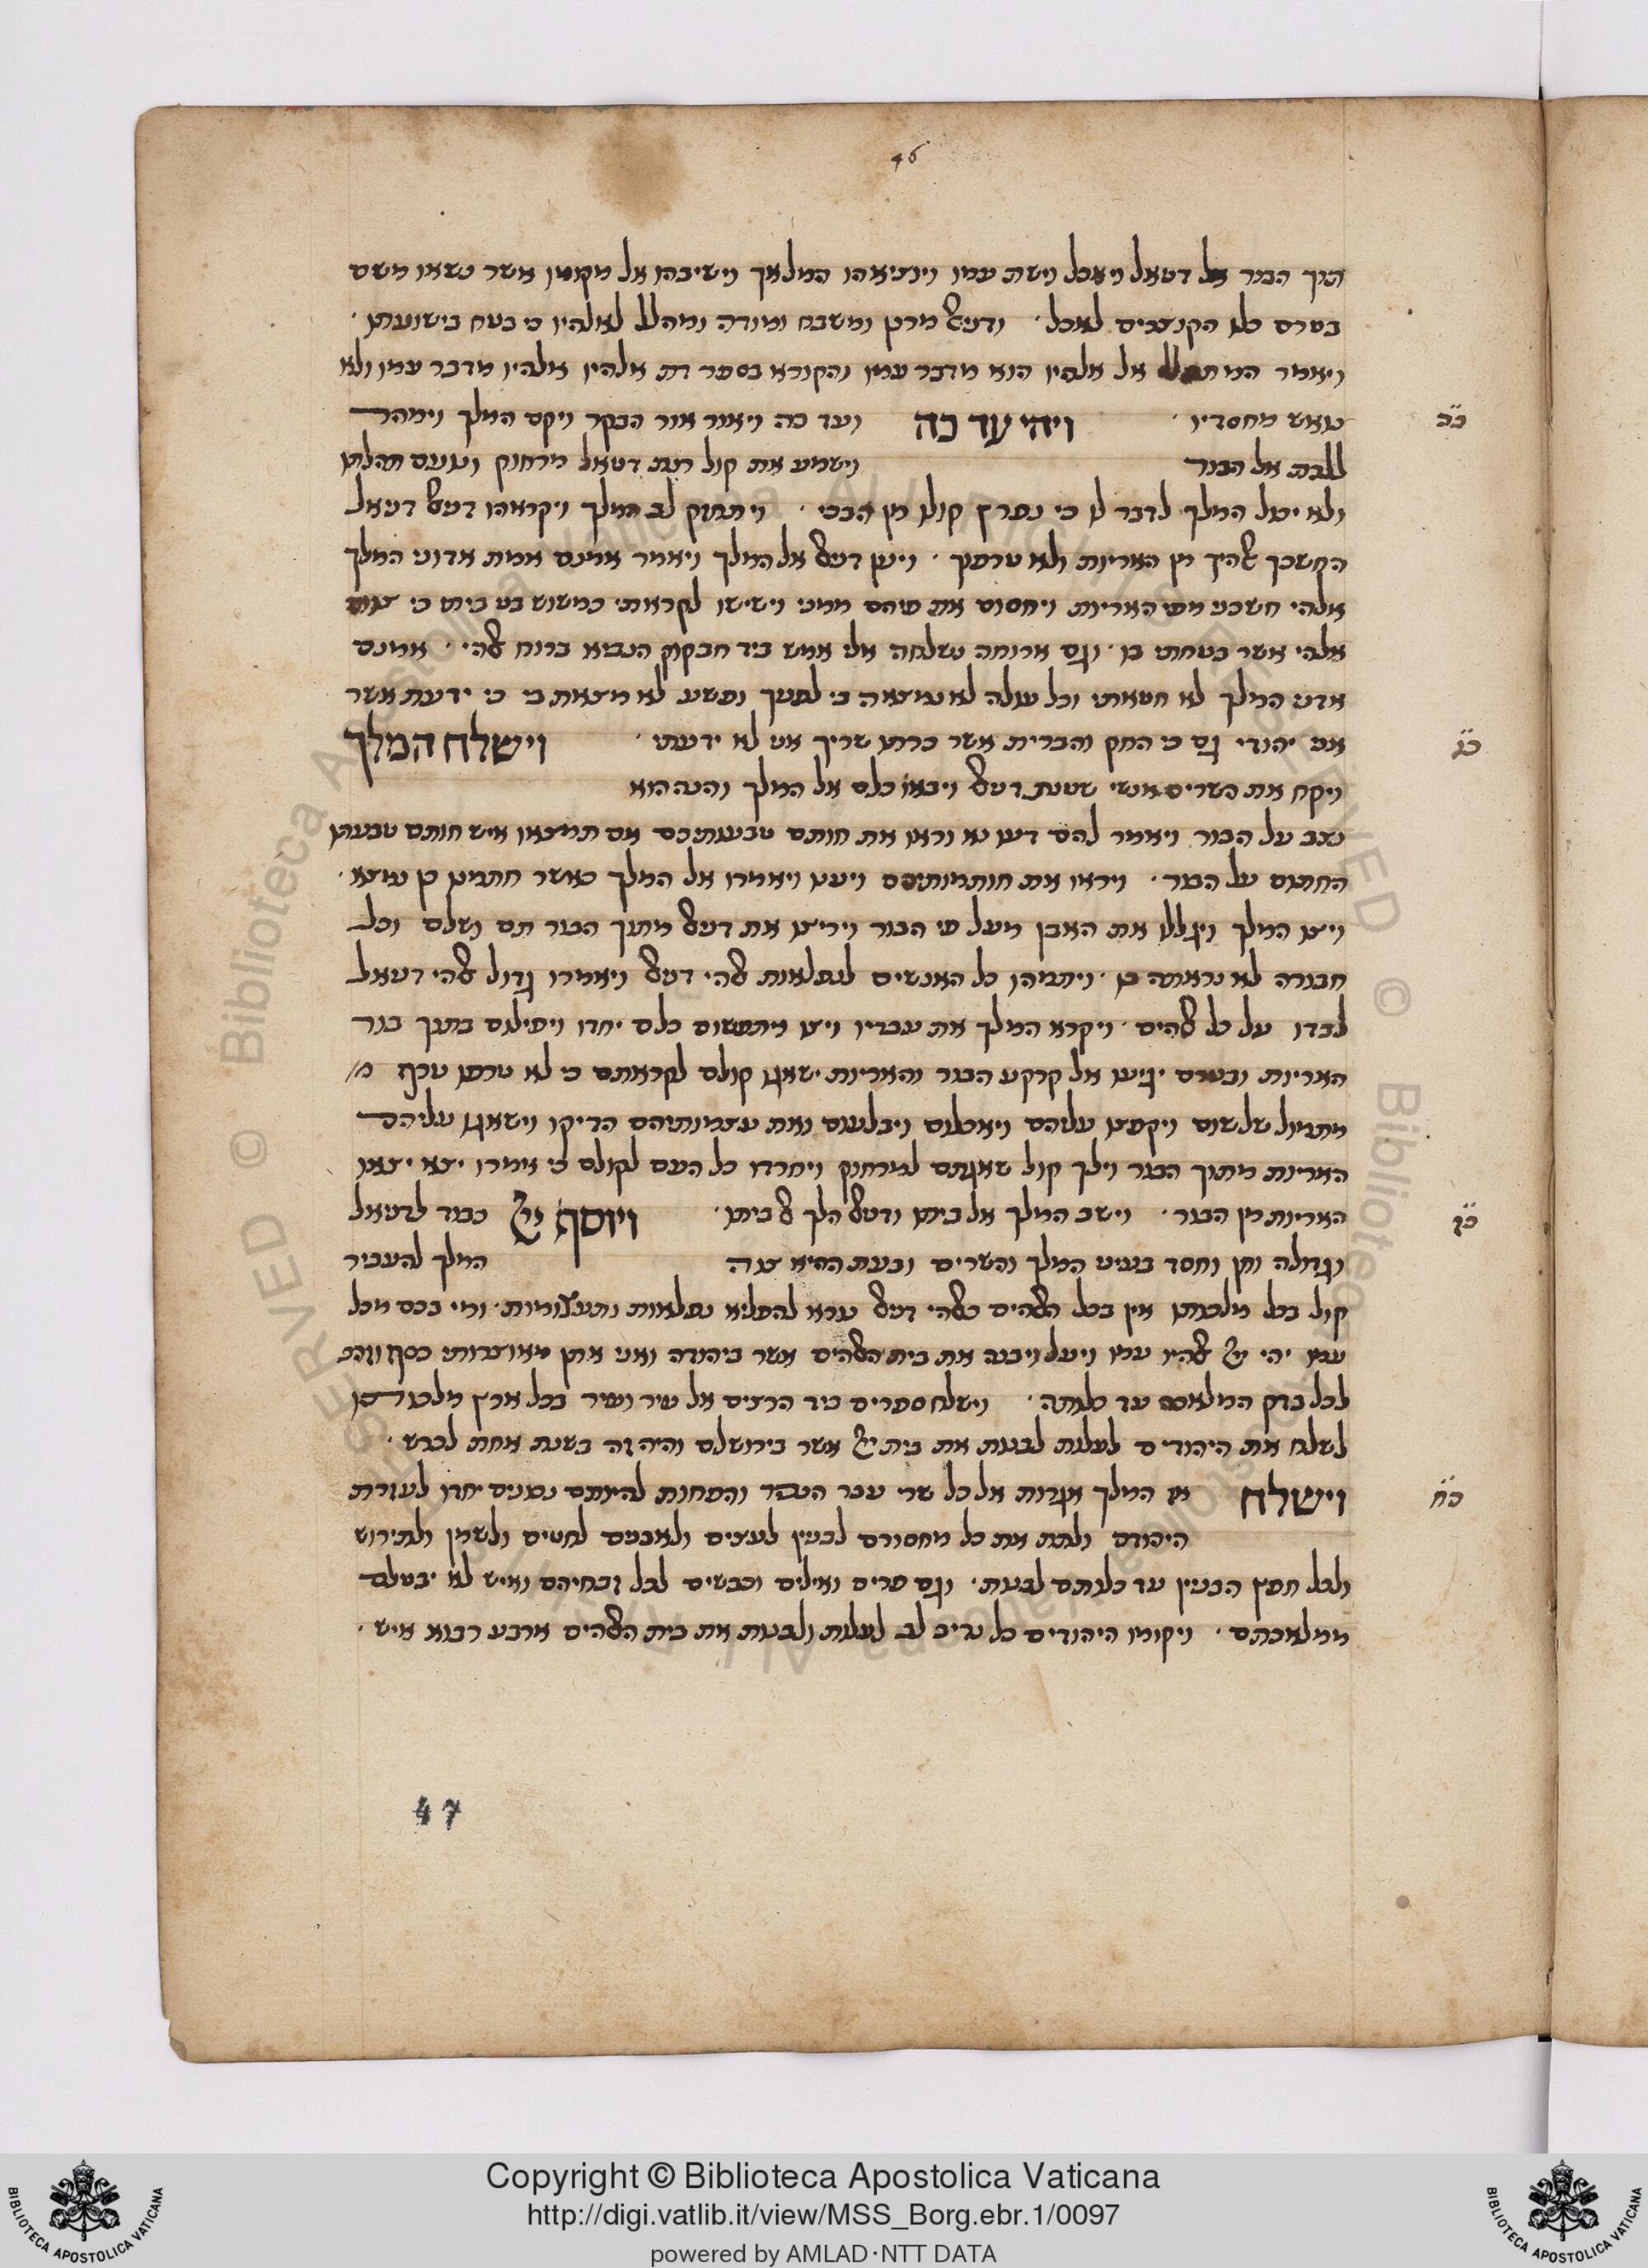 46
תוך הבור אל דניאל ויאכל וישת עמו ויוציאהו המלאך וישיבהו אל מקומו אשר נשאו משם
בטרם כלו הקוצרים לאכל · ודניאל מרנן ומשבח ומודה ומהלל לאלהיו כי בטח בישועתו ·
ויאמר המתפלל אל אלהיו הוא מדבר עמו והקורא בספר דת אלהיו אלהיו מדבר עמו ולא
נואש מחסדיו · ויהי עד כה ועד כה ויאור אור הבקר ויקם המלך וימהר
כב
ללכת אל הבור וישמע את קול רנת דניאל מרחוק ונועם תהלתו
ולא יכול המלך לדבר לו כי נפרץ קולו מן הבכי · ויתחזק לב המלך ויקראהו דניאל דניאל
החשכך אלהיך מן האריות ולא טרפוך · ויען דניאל אל המלך ויאמר אמנם אמת אדוני המלך
אלהי חשכני מפי האריות ויחסום את פיהם ממני וישישו לקראתי כמשוש בני ביתי כי צום
אלהי אשר בטחתי בו · וגם ארוחה נשלחה אלי אמש ביד חבקוק הנביא ברוח אלהי · אמנם
אדני המלך לא חטאתי וכל עולה לא נמצאה בי לפניך ופשע לא מצאת בי כי ידעת אשר
אני יהודי גם כי החק והברית אשר כרתו שריך אני לא ידעתי · וישלח המלך
כג
ויקח את השרים אנשי שטנת דניאל ויבאו כלם אל המלך והנה הוא
נצב על הבור ויאמר להם דעו נא וראו את חותם טבעותיכם אם תמצאו איש חותם טבעתו
החתום על הבור · ויראו את חותמותיהם ויענו ויאמרו אל המלך כאשר חתמנו כן נמצא ·
ויצו המלך ויגללו את האבן מעל פי הבור וירימו את דניאל מתוך הבור תם ושלם וכל
חבורה לא נראתה בו · ויתמהו כל האנשים לנפלאות אלהי דניאל ויאמרו גדול אלהי דניאל
לבדו על כל אלהים · ויקרא המלך את עבדיו ויצו ויתפשום כלם יחדו ויפילום בתוך בור
האריות ובטרם יגיעו אל קרקע הבור והאריות ישאגו קולם לקראתם כי לא טרפו טרף מ
מתמול שלשום ויקפצו עליהם ויאכלום ויבלעום ואת עצמותיהם הדיקו וישאגו עליהם
האריות מתוך הבור וילך קול שאגתם למרחוק ויחרדו כל העם לקולם כי אמרו יצא יצאו
האריות מן הבור · וישב המלך אל ביתו ודניאל הלך אל ביתו · ויוסף יי כבוד לדניאל
כד
וגדולה וחן וחסד בעיני המלך והשרים ובעת ההיא צוה המלך להעביר
קול בכל מלכותו אין בכל אלהים כאלהי דניאל נורא להפליא נפלאות ותעצומות · ומי בכם מכל
עמו יהי יי אלהיו עמו ויעל ויבנה את בית האלהים אשר ביהודה ואני אתן מאוצרותי כסף וזהב
לכל בדק המלאכה עד כלותה · וישלח ספרים ביד הרצים אל עיר ועיר בכל ארץ מלכותו
לשלח את היהודים לעלות לבנות את בית יי אשר בירושלם והיה זה בשנת אחת לכרש ·
וישלח המלך אגרות אל כל שרי עבר הנהר והפחות להיותם נכונים יחדו לעזרת
כה
היהודים ולתת את כל מחסורם לבנין לעצים ולאבנים לחטים ולשמן ולתירוש
ולכל חפץ הבנין עד כלותם לבנות · וגם פרים ואילים וכבשים לכל זבחיהם ואיש לא יבטלם
ממלאכתם · ויקומו היהודים כל נדיב לב לעלות ולבנות את בית האלהים ארבע רבוא איש ·
47
Copyright © Biblioteca Apostolica Vaticana
http://digi.vatlib.it/view/MSS_Borg.ebr.1/0097
powered by AMLAD·NTT DATA